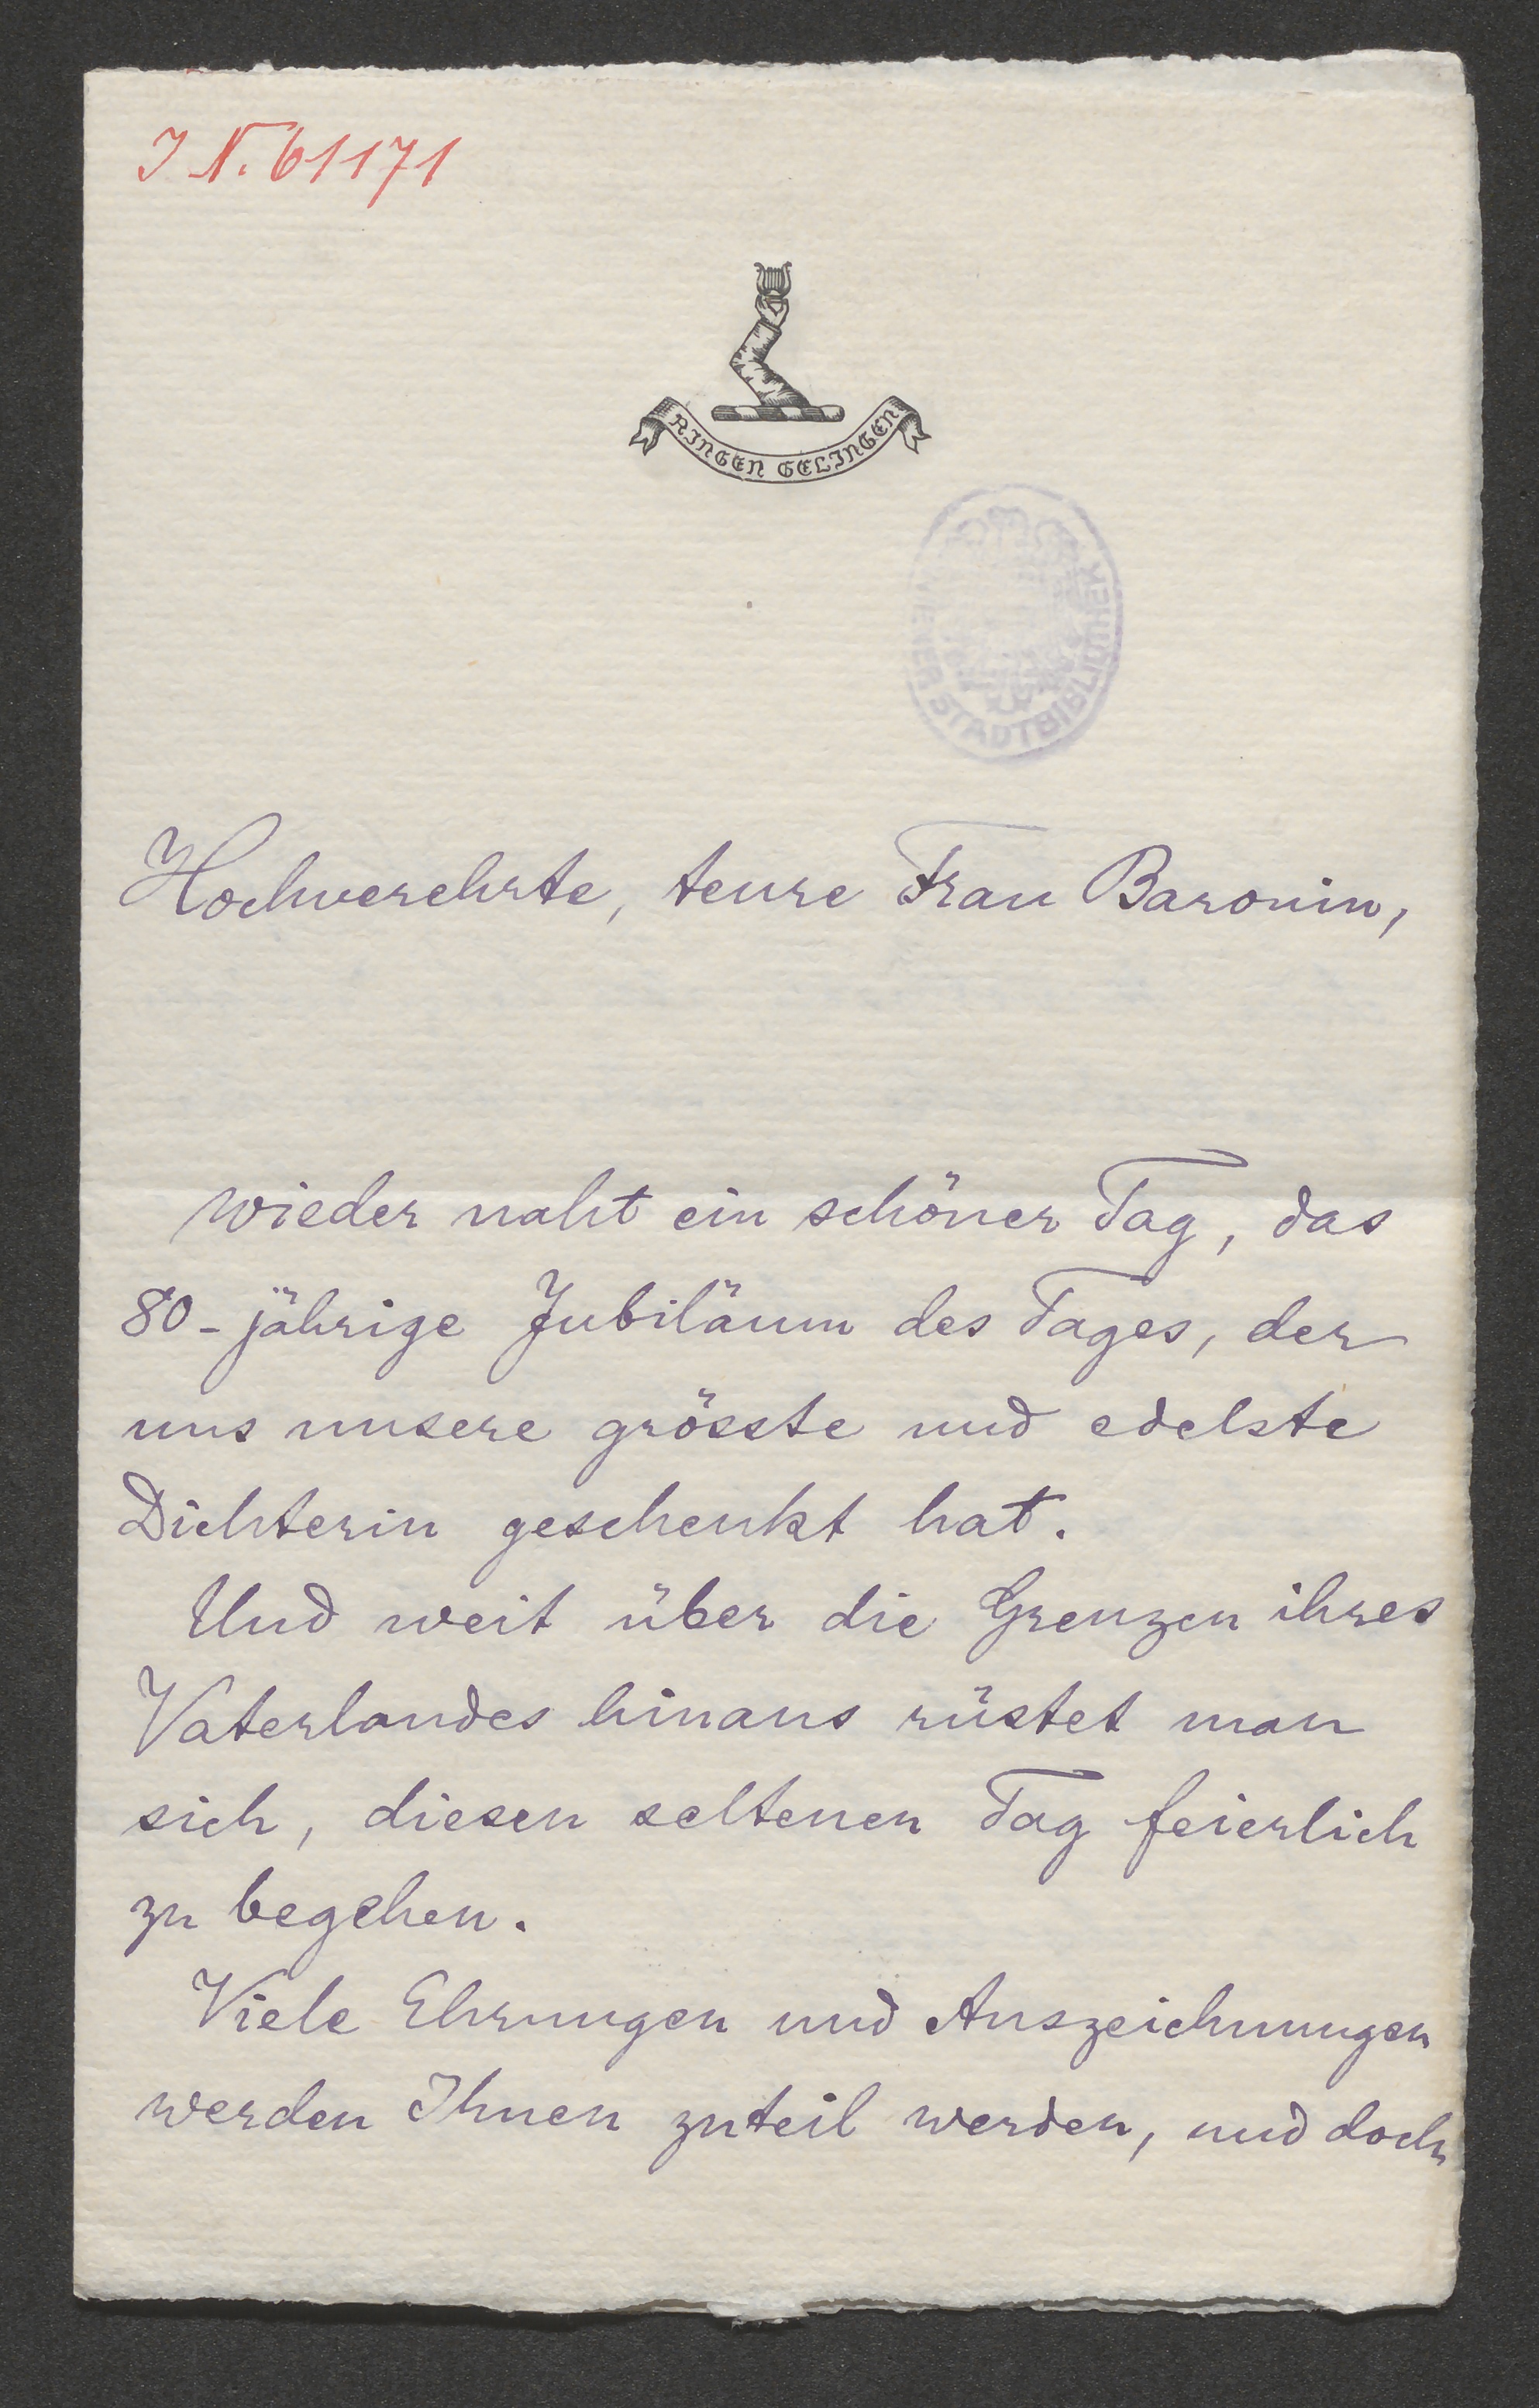 I N. 61171
RINGEN GELINGEN
WIENER STADTBIBLIOTHEK
Hochverehrte, teure Frau Baronin,
wieder naht ein schöner Tag, das
80-jährige Jubiläum des Tages, der
uns unsere grösste und edelste
Dichterin geschenkt hat.
Und weit über die Grenzen ihres
Vaterlandes hinaus rüstet man
sich, diesen seltenen Tag feierlich
zu begehen.
Viele Ehrungen und Auszeichnungen
werden Ihnen zuteil werden, und doch